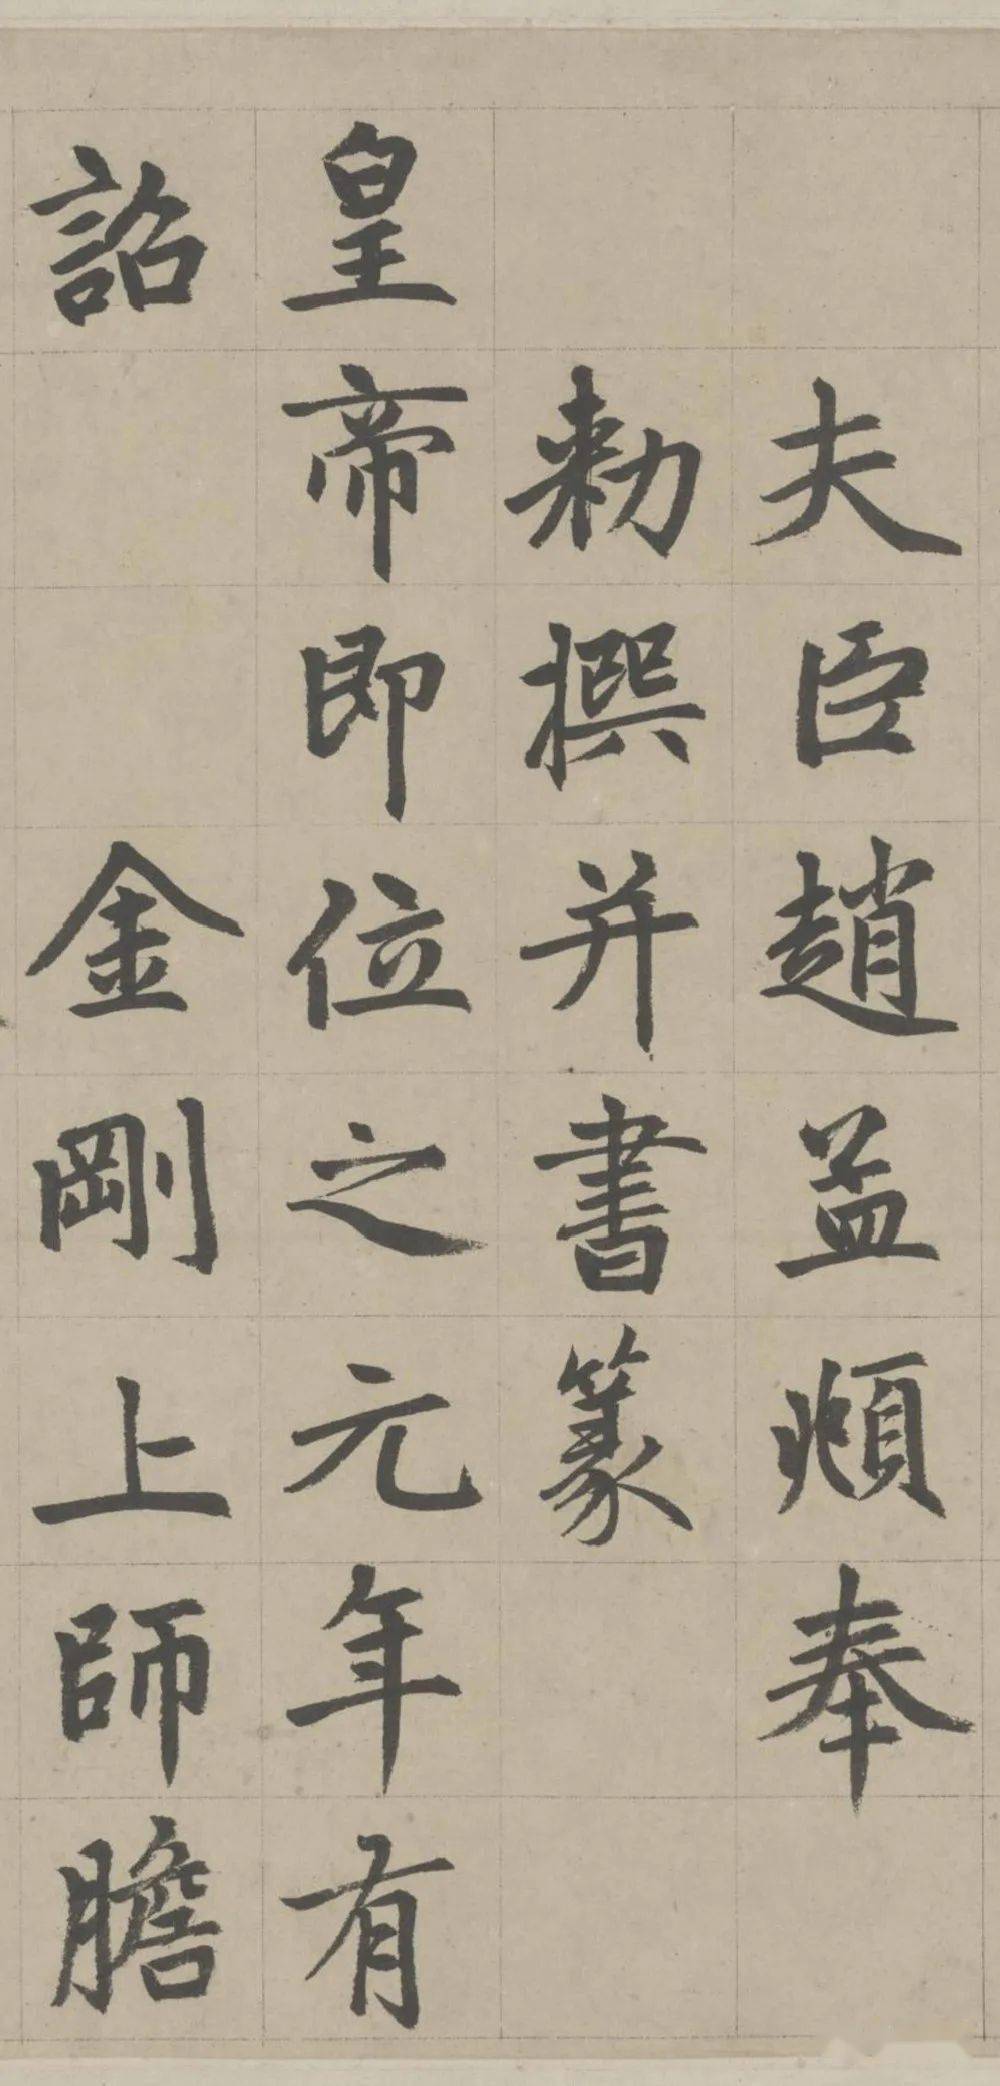 夫臣趙孟頫奉
勑撰并書篆
皇帝即位之元年有
詔金剛上師膽